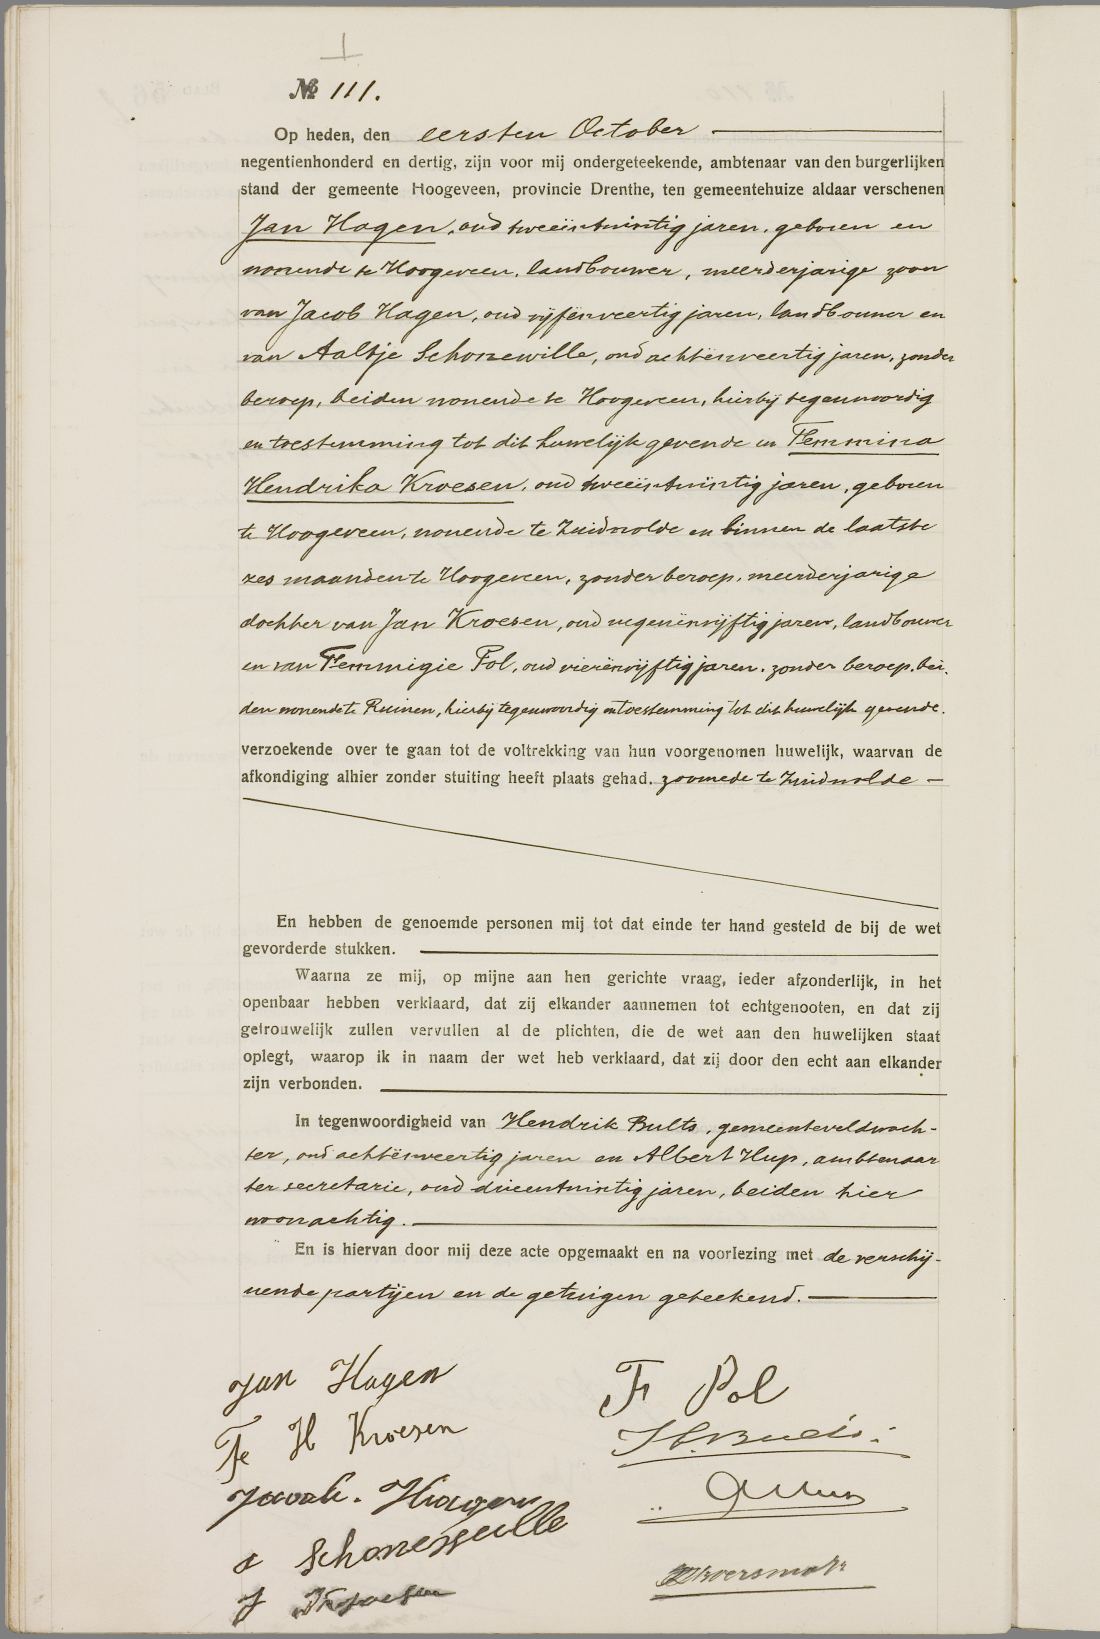 № 111.
Op heden, den eersten October
negentienhonderd en dertig, zijn voor mij ondergeteekende, ambtenaar van den burgerlijken
stand der gemeente Hoogeveen, provincie Drenthe, ten gemeentehuize aldaar verschenen
Jan Hagen, oud tweeëntwintig jaren, geboren en
wonende te Hoogeveen, landbouwer, meerderjarige zoon
van Jacob Hagen, oud vijfenveertig jaren, landbouwer en
van Aaltje Schonewille, oud achtënveertig jaren, zonder
beroep, beiden wonende te Hoogeveen, hierbij tegenwoordig
en toestemming tot dit huwelijk gevende en Femmina
Hendrika Kroesen, oud tweeëntwintig jaren, geboren
te Hoogeveen, wonende te Zuidwolde en binnen de laatste
zes maanden te Hoogeveen, zonder beroep, meerderjarige
dochter van Jan Kroesen, oud negenënvijftig jaren, landbouwer
en van Femmigje Pol, oud vierënvijftig jaren, zonder beroep, bei-
den wonende te Ruinen, hierbij tegenwoordig en toestemming tot dit huwelijk gevende.
verzoekende over te gaan tot de voltrekking van hun voorgenomen huwelijk, waarvan de
afkondiging alhier zonder stuiting heeft plaats gehad, zoomede te Zuidwolde —
En hebben de genoemde personen mij tot dat einde ter hand gesteld de bij de wet
gevorderde stukken.
Waarna ze mij, op mijne aan hen gerichte vraag, ieder afzonderlijk, in het
openbaar hebben verklaard, dat zij elkander aannemen tot echtgenooten, en dat zij
getrouwelijk zullen vervullen al de plichten, die de wet aan den huwelijken staat
oplegt, waarop ik in naam der wet heb verklaard, dat zij door den echt aan elkander
zijn verbonden.
In tegenwoordigheid van Hendrik Bults, gemeenteveldwach-
ter, oud achtënveertig jaren en Albert Hup, ambtenaar
ter secretarie, oud drieentwintig jaren, beiden hier
woonachtig.
En is hiervan door mij deze acte opgemaakt en na voorlezing met de verschij-
nende partijen en de getuigen geteekend.
Jan Hagen
F Pol
Fe H Kroesen
H. Bults
Jacob. Hagen
A Hup
a Schonewille
J Kroesen